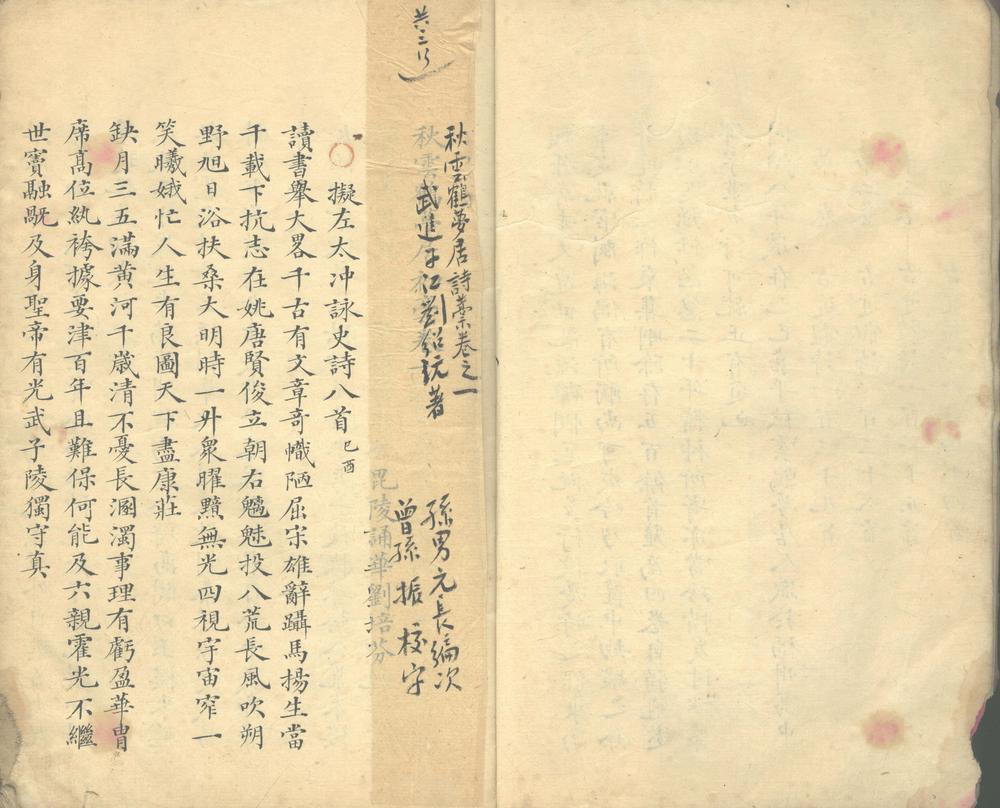 共三行
秋雲鶴夢居詩藁卷之一
武進子紅劉紹玩著
孫男元長編次
曾孫振校字
毘陵誦華劉培芬
擬左太冲詠史詩八首 己酉
讀書舉大畧千古有文章奇幟陋屈宋雄辭躡馬揚生當
千載下抗志在姚唐賢俊立朝右魑魅投八荒長風吹朔
野旭日浴扶桑大明時一升衆曜黯無光四視宇宙窄一
笑曦娥忙人生有良圖天下盡康莊
缺月三五滿黄河千歲清不憂長溷濁事理有虧盈華胄
席高位紈袴據要津百年且難保何能及六親霍光不繼
世竇融戱及身聖帝有光武子陵獨守真